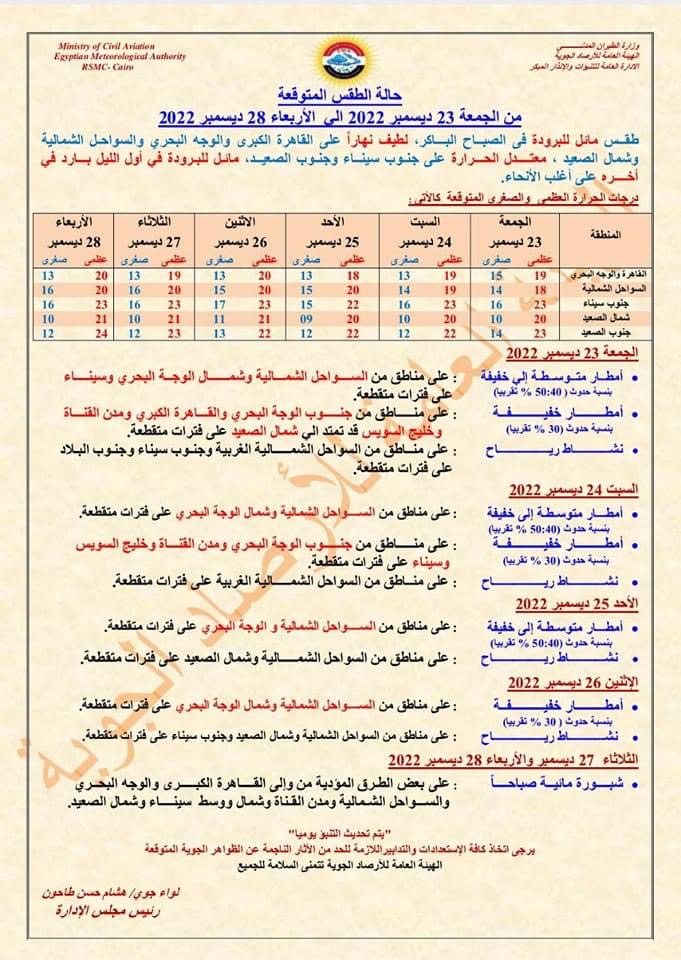 Ministry of Civil Aviation
Egyptian Meteorological Authority
RSMC- Cairo
وزارة الطيران المدنـــــــي
الهيئة العامة للأرصاد الجوية
الادارة العامة للتنبؤات والإنذار المبكر
حالة الطقس المتوقعة
من الجمعة 23 ديسمبر 2022 الي الأربعاء 28 ديسمبر 2022
طقـس مائل للبرودة فى الصباح الباكر، لطيف نهاراً على القاهرة الكبرى والوجه البحري والسواحل الشمالية
وشمال الصعيد ، معتدل الحرارة على جنوب سيناء وجنوب الصعيد، مائل للبرودة في أول الليل بارد في
أخره على أغلب الأنحاء.
درجات الحرارة العظمي والصغري المتوقعة كالأتي:
المنطقة الجمعة السبت الأحد الاثنين الثلاثاء الأربعاء
23 ديسمبر 24 ديسمبر 25 ديسمبر 26 ديسمبر 27 ديسمبر 28 ديسمبر
عظمى صغرى عظمى صغرى عظمى صغرى عظمى صغرى عظمى صغرى عظمى صغرى
القاهرة والوجه البحري 19 15 19 13 18 13 20 13 19 13 20 13
السواحل الشمالية 18 14 19 14 20 15 20 15 20 16 20 16
جنوب سيناء 23 16 23 16 22 15 23 17 23 16 23 16
شمال الصعيد 20 10 20 10 20 09 21 11 21 10 21 10
جنوب الصعيد 23 14 22 12 22 12 22 13 23 12 24 12
الجمعة 23 ديسمبر 2022
• أمطار متوسطة إلي خفيفة : على مناطق من السواحل الشمالية وشمال الوجة البحري وسيناء
بنسبة حدوث (50:40 % تقريبا) على فترات متقطعة.
• أمطار خفيفة : على مناطق من جنوب الوجة البحري والقاهرة الكبري ومدن القناة
بنسبة حدوث (30 % تقريبا) وخليج السويس قد تمتد الي شمال الصعيد على فترات متقطعة.
• نشاط رياح : على مناطق من السواحل الشمالية الغربية وجنوب سيناء وجنوب البلاد
على فترات متقطعة.
السبت 24 ديسمبر 2022
• أمطار متوسطة إلى خفيفة : على مناطق من السواحل الشمالية وشمال الوجة البحري على فترات متقطعة.
بنسبة حدوث (50:40 % تقريبا)
• أمطار خفيفة : على مناطق من جنوب الوجة البحري ومدن القناة وخليج السويس
بنسبة حدوث (30 % تقريبا) وسيناء على فترات متقطعة.
• نشاط رياح : على مناطق من السواحل الشمالية الغربية على فترات متقطعة.
الأحد 25 ديسمبر 2022
• أمطار متوسطة إلى خفيفة : على مناطق من السواحل الشمالية و الوجة البحري على فترات متقطعة.
بنسبة حدوث (50:40 % تقريبا)
• نشاط رياح : على مناطق من السواحل الشمالية وشمال الصعيد على فترات متقطعة.
الإثنين 26 ديسمبر 2022
• أمطار خفيفة : على مناطق من السواحل الشمالية وشمال الوجة البحري على فترات متقطعة.
بنسبة حدوث (30 % تقريبا)
• نشاط رياح : على مناطق من السواحل الشمالية وشمال الصعيد وجنوب سيناء على فترات متقطعة.
الثلاثاء 27 ديسمبر والأربعاء 28 ديسمبر 2022
• شبورة مائية صباحاً : على بعض الطرق المؤدية من وإلى القاهرة الكبرى والوجه البحري
والسواحل الشمالية ومدن القناة وشمال ووسط سيناء وشمال الصعيد.
"يتم تحديث التنبؤ يوميا"
يرجى اتخاذ كافة الإستعدادات والتدابيراللازمة للحد من الآثار الناجمة عن الظواهر الجوية المتوقعة
الهيئة العامة للأرصاد الجوية تتمنى السلامة للجميع
لواء جوي/ هشام حسن طاحون
رئيس مجلس الإدارة